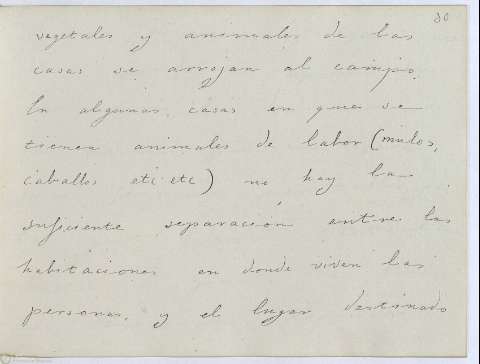 30
vegetales y animales de las
casas se arrojan al campo.
En algunas casas en que se
tienen animales de labor (mulos,
caballos etc etc) no hay la
suficiente separación entre las
habitaciones en donde viven las
personas, y el lugar destinado